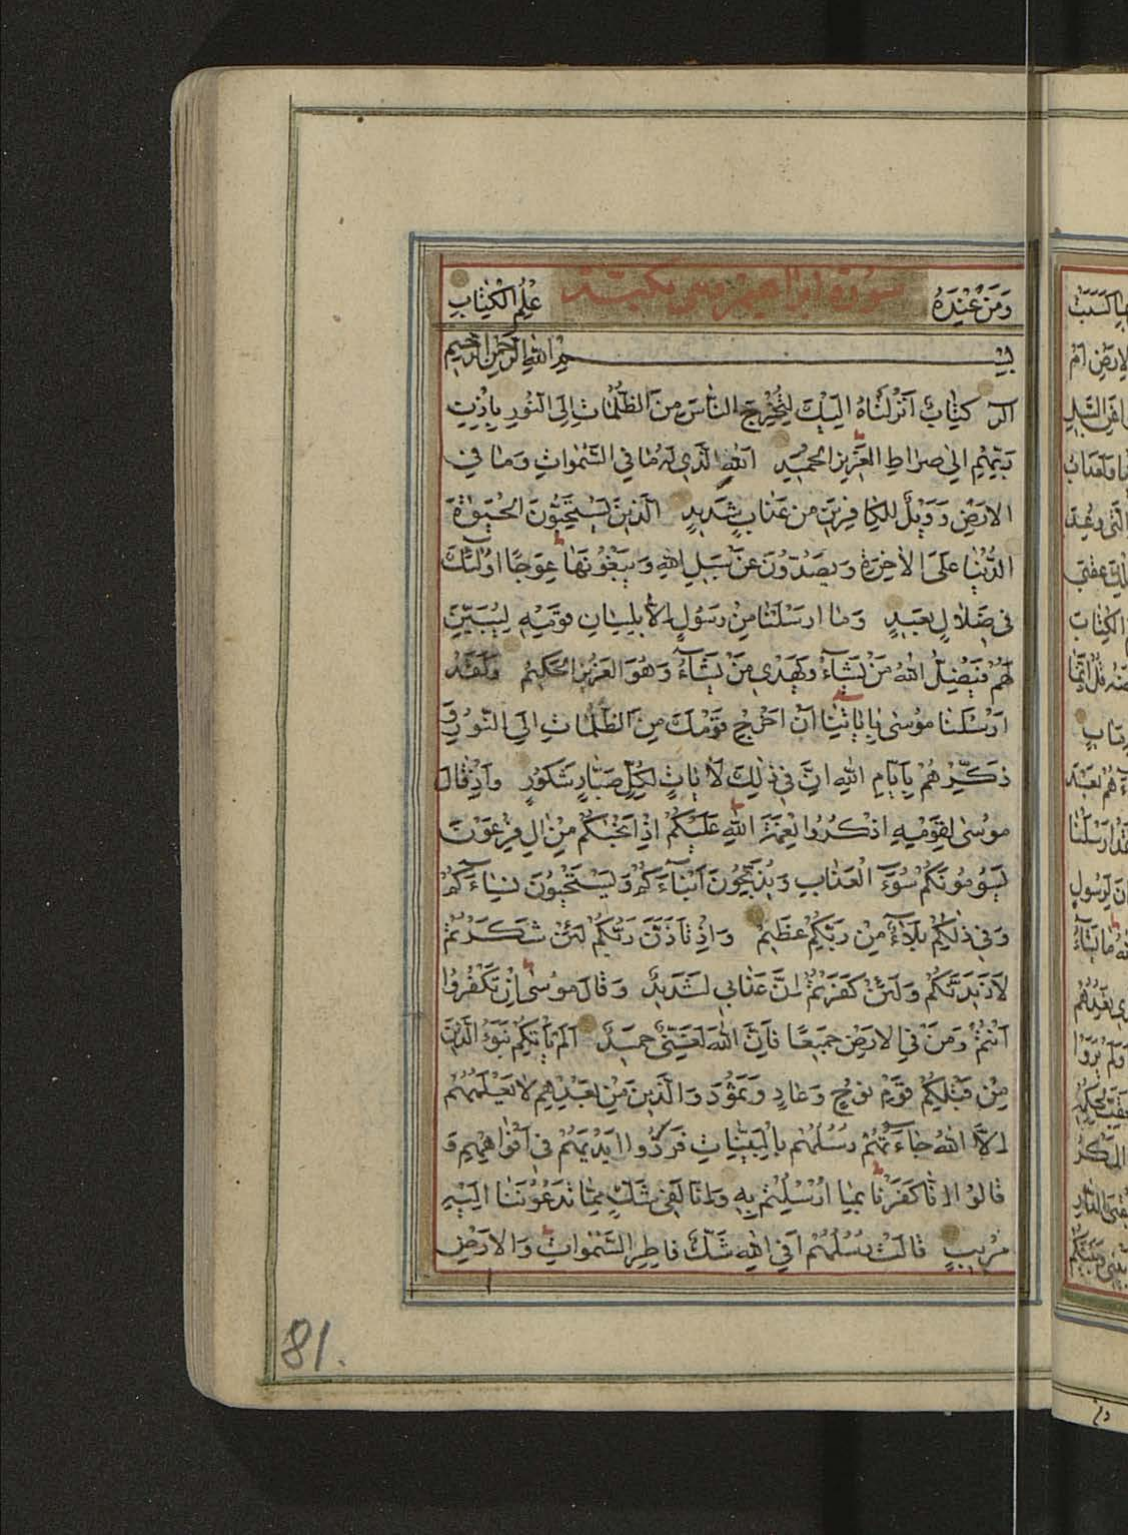 وَمَنْ عِنْدَهُ سورة ابراهيم مكية عِلْمُ الْكِتَابِ
بِسْمِ اللهِ الرَّحْمٰنِ الرَّحِيمِ
الر كِتَابٌ اَنْزَلْنَاهُ اِلَيْكَ لِتُخْرِجَ النَّاسَ مِنَ الظُّلُمَاتِ اِلَى النُّورِ بِاِذْنِ
رَبِّهِمْ اِلٰى صِرَاطِ الْعَزِيزِ الْحَمِيدِ اَللهِ الَّذِي لَهُ مَا فِي السَّمٰوَاتِ وَمَا فِي
الْاَرْضِ وَوَيْلٌ لِلْكَافِرِينَ مِنْ عَذَابٍ شَدِيدٍ الَّذِينَ يَسْتَحِبُّونَ الْحَيٰوةَ
الدُّنْيَا عَلَى الْاٰخِرَةِ وَيَصُدُّونَ عَنْ سَبِيلِ اللهِ وَيَبْغُونَهَا عِوَجًا اُولٰئِكَ
فِي ضَلَالٍ بَعِيدٍ وَمَا اَرْسَلْنَا مِنْ رَسُولٍ اِلَّا بِلِسَانِ قَوْمِهِ لِيُبَيِّنَ
لَهُمْ فَيُضِلُّ اللهُ مَنْ يَشَاءُ وَيَهْدِي مَنْ يَشَاءُ وَهُوَ الْعَزِيزُ الْحَكِيمُ وَلَقَدْ
اَرْسَلْنَا مُوسٰى بِاٰيَاتِنَا اَنْ اَخْرِجْ قَوْمَكَ مِنَ الظُّلُمَاتِ اِلَى النُّورِ وَ
ذَكِّرْهُمْ بِاَيَّامِ اللهِ اِنَّ فِي ذٰلِكَ لَاٰيَاتٍ لِكُلِّ صَبَّارٍ شَكُورٍ وَاِذْ قَالَ
مُوسٰى لِقَوْمِهِ اذْكُرُوا نِعْمَةَ اللهِ عَلَيْكُمْ اِذْ اَنْجٰكُمْ مِنْ اٰلِ فِرْعَوْنَ
يَسُومُونَكُمْ سُوءَ الْعَذَابِ وَيُذَبِّحُونَ اَبْنَاءَكُمْ وَيَسْتَحْيُونَ نِسَاءَكُمْ
وَفِي ذٰلِكُمْ بَلَاءٌ مِنْ رَبِّكُمْ عَظِيمٌ وَاِذْ تَاَذَّنَ رَبُّكُمْ لَئِنْ شَكَرْتُمْ
لَاَزِيدَنَّكُمْ وَلَئِنْ كَفَرْتُمْ اِنَّ عَذَابِي لَشَدِيدٌ وَقَالَ مُوسٰى اِنْ تَكْفُرُوا
اَنْتُمْ وَمَنْ فِي الْاَرْضِ جَمِيعًا فَاِنَّ اللهَ لَغَنِيٌّ حَمِيدٌ اَلَمْ يَاْتِكُمْ نَبَؤُا الَّذِينَ
مِنْ قَبْلِكُمْ قَوْمِ نُوحٍ وَعَادٍ وَثَمُودَ وَالَّذِينَ مِنْ بَعْدِهِمْ لَا يَعْلَمُهُمْ
اِلَّا اللهُ جَاءَتْهُمْ رُسُلُهُمْ بِالْبَيِّنَاتِ فَرَدُّوا اَيْدِيَهُمْ فِي اَفْوَاهِهِمْ وَ
قَالُوا اِنَّا كَفَرْنَا بِمَا اُرْسِلْتُمْ بِهِ وَاِنَّا لَفِي شَكٍّ مِمَّا تَدْعُونَنَا اِلَيْهِ
مُرِيبٍ قَالَتْ رُسُلُهُمْ اَفِي اللهِ شَكٌّ فَاطِرِ السَّمٰوَاتِ وَالْاَرْضِ
81.